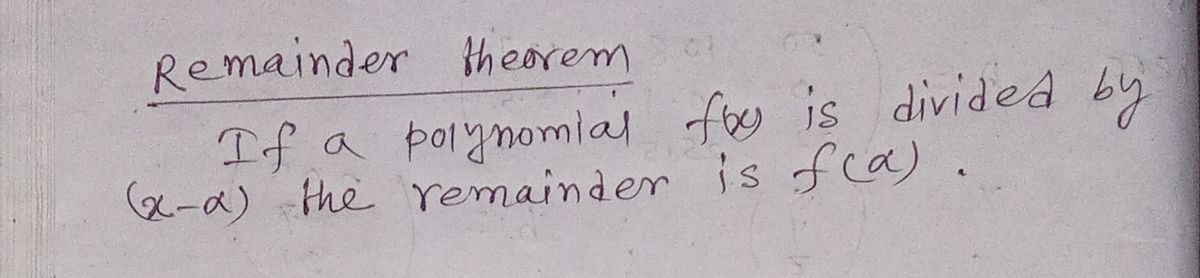 Remainder theorem
If a polynomial f(x) is divided by
(x-α) the remainder is f(α).